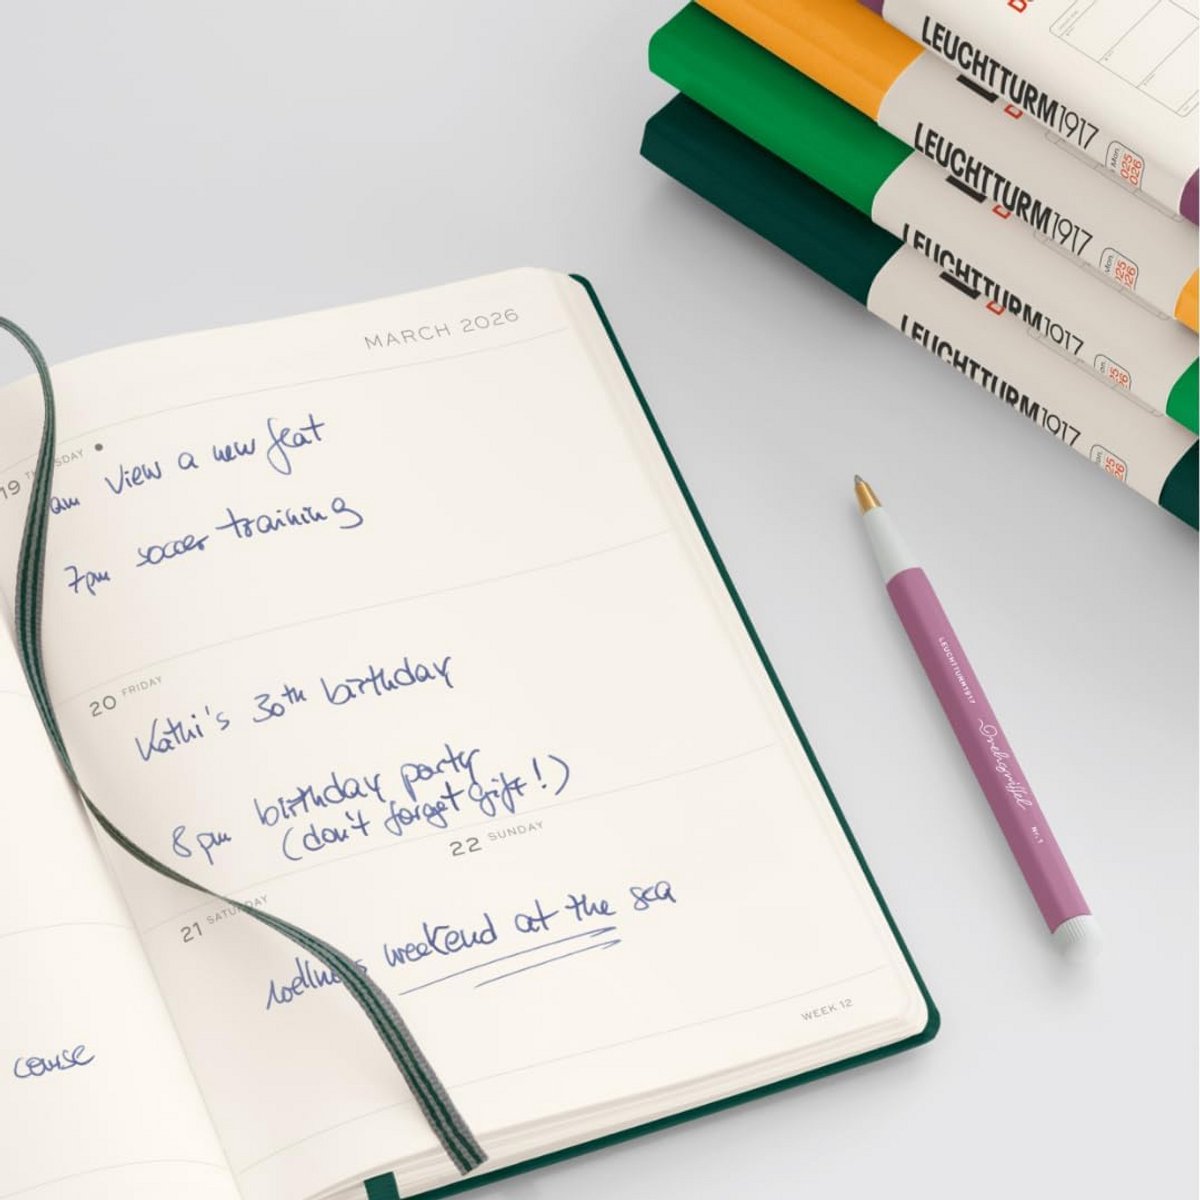 MARCH 2026
19 THURSDAY
am View a new flat
7pm soccer training
20 FRIDAY
Kathi's 30th birthday
8pm birthday party
(don't forget gift!)
22 SUNDAY
21 SATURDAY
wellness weekend at the sea
WEEK 12
course
LEUCHTTURM1917
LEUCHTTURM1917
LEUCHTTURM1917
LEUCHTTURM1917
LEUCHTTURM1917 Drehgriffel Nr. 1